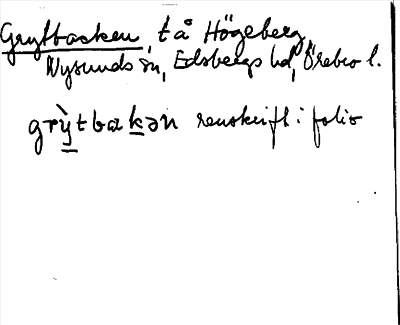 Grytbacken, t å Högeberg,
Nysunds sn, Edsbergs hd, Örebro l.
grỳtbakən renskrift i folio